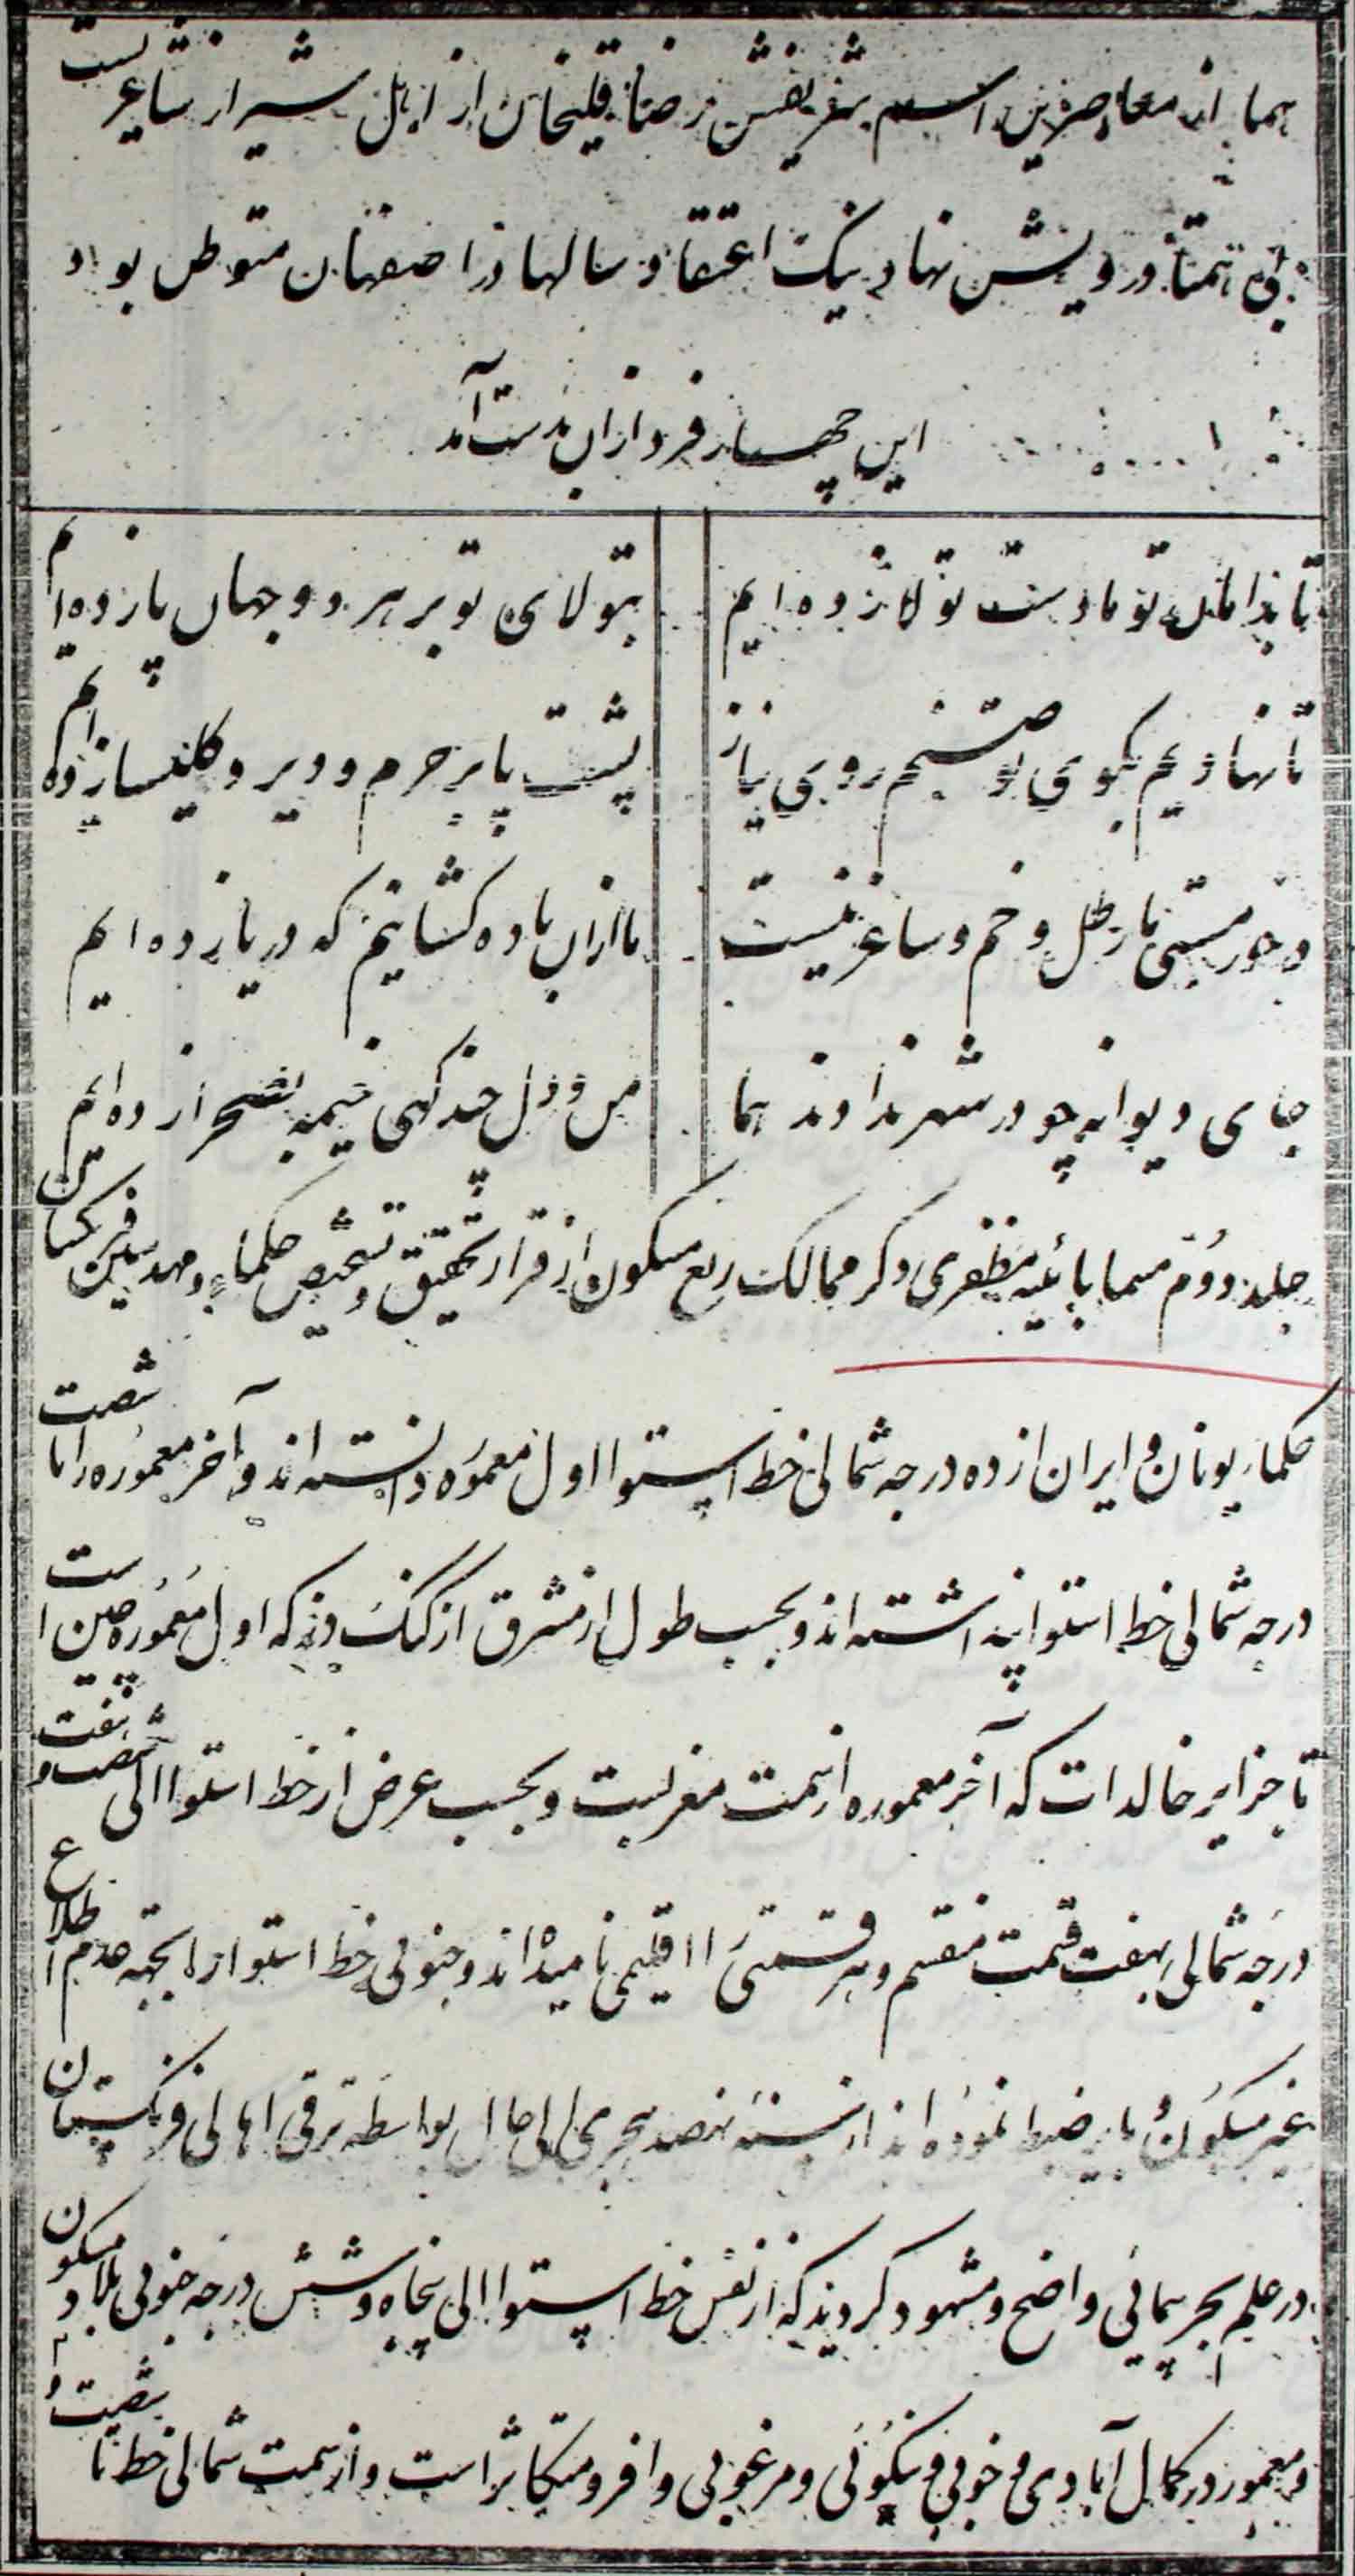 هما از معاصرین اسم شریفش رضا قلیخان از اهل شیراز شاعریست
بی همتا درویش نهاد نیک اعتقاد سالها در اصفهان متوطن بود
این چهار فرد از ان بدست آمد
تا بدامان تو ما دست تولا زده ایم
بتولای تو بر هر دو جهان پا زده ایم
تا نهادیم بکوی تو صنم روی نیاز
پشت پا بر حرم و دیر و کلیسا زده ایم
در خور مستی ما رطل و خم و ساغر نیست
ما ازان باده کشانیم که دریا زده ایم
جای دیوانه چو در شهر ندادند هما
من و دل چند گهی خیمه بصحرا زده ایم
جلد دوّم مسما بائینه مظفری ذکر ممالک ربع مسکون از قرار تحقیق و تشخیص حکماء و مهندسین فرنکستان
حکماء یونان و ایران از ده درجه شمالی خط استوا اول معموره دانسته اند و آخر معموره را تا شصت
درجه شمالی خط استوا پنداشته اند و بحسب طول از مشرق از کنک دز که اول معموره چین است
تا جزایر خالدات که آخر معموره از سمت مغربست و بحسب عرض از خط استوا الی شصت و هفت
درجه شمالی بهفت قسمت منقسم و هر قسمتی را اقلیمی نامیده اند و جنوبی خط استوا را بجهته عدم اطلاع
غیر مسکون و بایر ضبط نموده اند از سنه نهصد هجری الی حال بواسطه ترقی اهالی فرنکستان
در علم بحر پیمائی واضح و مشهود کردید که از نفس خط استوا الی پنجاه و شش درجه جنوبی بلاد مسکون
و معمور در کمال آبادی و خوبی و نیکوئی و مرغوبی وافر و متکاثر است و از سمت شمالی خط تا بشصت و